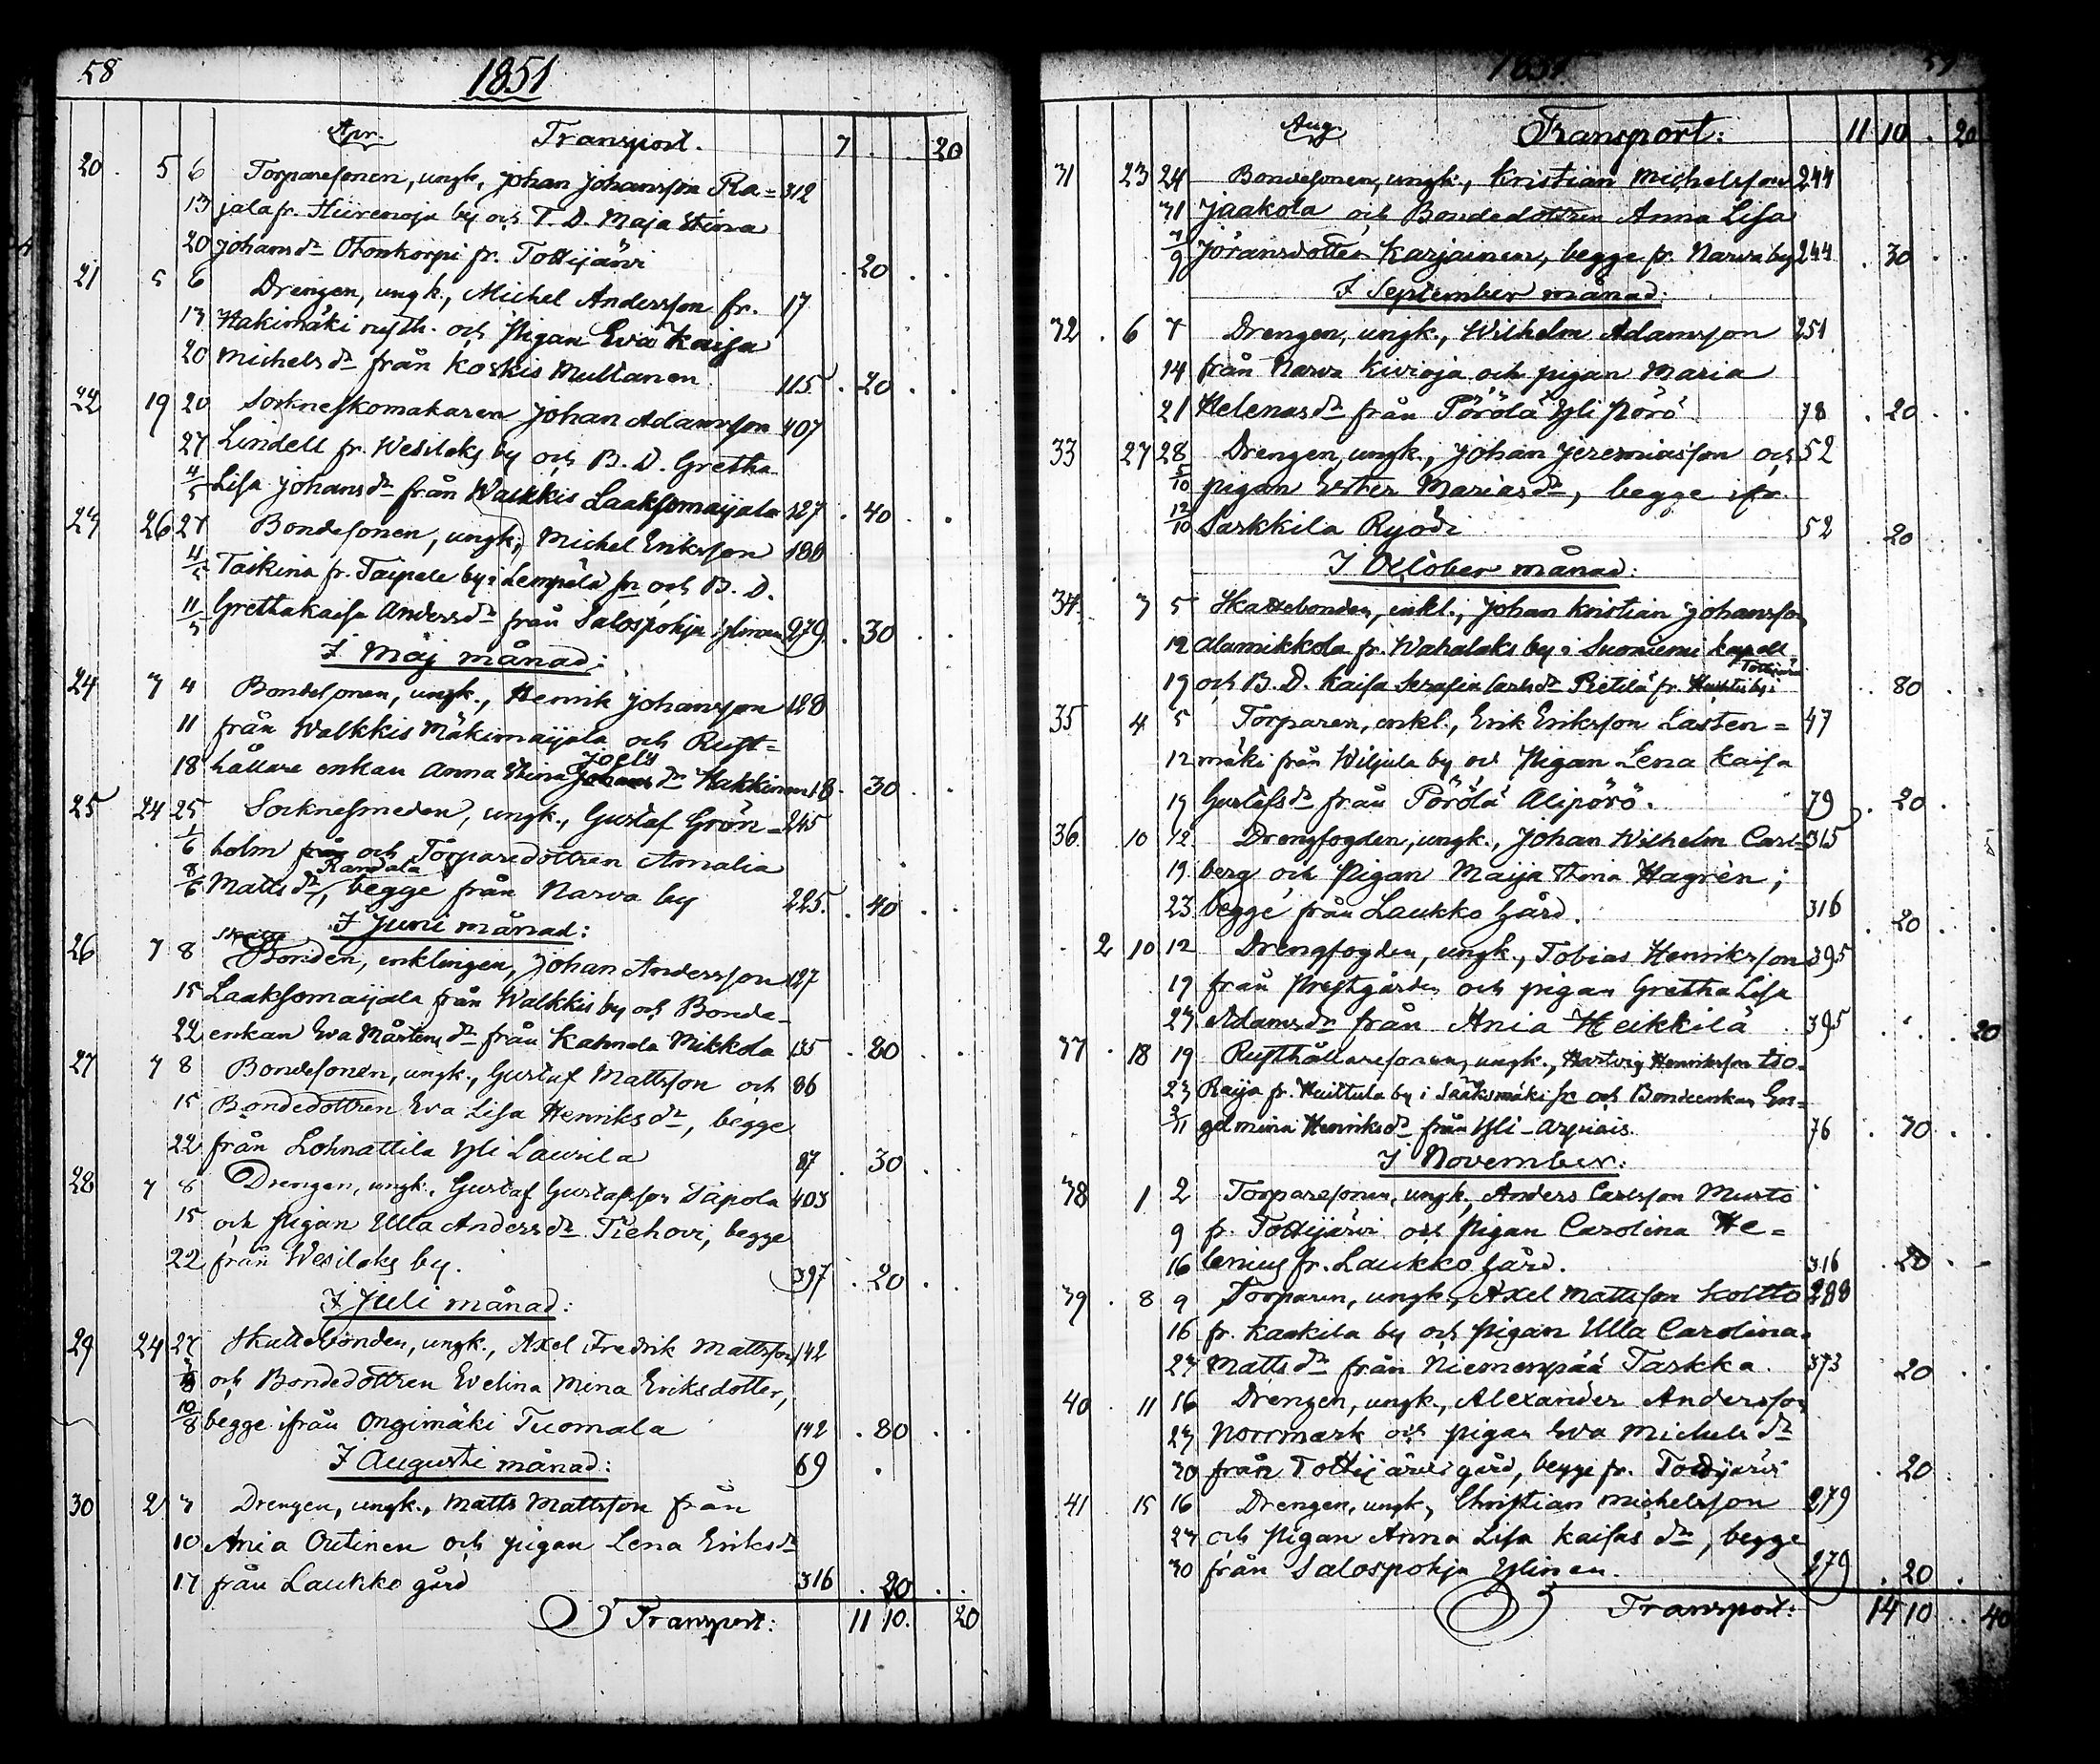 58 1851
Apr. Transport. 7 . . 20
20 . 5 6 Torparesonen, ungk, Johan Johansson Ra= 312
13 jala fr. Hiirenoja by och T. D. Maja Stina
20 Johans dr Otonkorpi fr. Tottijärvi . 20 . .
21 5 6 Drengen, ungk., Michel Andersson fr. 17
13 Hakimäki rusth. och Pigan Eva Kaisa
20 Michels dr från Koskis Multanen 115 . 20 . .
22 19 20 Sockneskomakaren Johan Adamsson 407
27 Lindell fr. Wesilaks by och B. D. Gretha
4/5 Lisa Johans dr från Walkkis Laaksomaijala 127 . 40 . .
23 26 27 Bondesonen, ungk, Michel Eriksson 186
4/5 Taskina fr. Taipale by i Lempälä sn och B. D.
11/5 Gretha Kaisa Anders dr från Salospohja Ylinen 279 . 30 . .
I Maj månad:
24 3 4 Bondesonen, ungk., Henrik Johansson 128
11 från Walkkis Mäkimaijala och Rust=
Joels
18 hållare enkan Anna Stina Johans dr Hakkinen 18 . 30 . .
25 24 25 Socknesmeden, ungk., Gustaf Grön= 245
1/6 holm från och Torparedottren Amalia
Randala
8/6 Matts dr, begge från Narva by 225 . 40 . .
I Juni månad:
Skatte
26 7 8 Bonden, enklingen, Johan Andersson 127
15 Laaksomaijala från Walkkis by och Bonde-
22 enkan Eva Mårtens dr från Kahnala Mikkola 135 . 80 . .
27 7 8 Bondesonen, ungk., Gustaf Mattsson och 86
15 Bondedottren Eva Lisa Henriks dr, begge
22 från Lohnattila Yli Laurila 87 . 30 . .
28 7 8 Drengen, ungk., Gustaf Gustafsson Täpola 403
15 och Pigan Ulla Anders dr Tiehovi, begge
22 från Wesilaks by. 397 . 20 . .
I Juli månad:
29 24 27 Skattebonden, ungk., Axel Fredrik Mattsson 142
3/8 och Bondedottren Evelina Mina Eriksdotter,
10/8 begge ifrån Ongimäki Tuomala 142 . 80 . .
I Augusti månad: 69 .
30 2 3 Drengen, ungk., Matts Mattsson från
10 Ania Outinen och pigan Lena Eriks dr
17 från Laukko gård 316 . 20 . .
Transport: 11 10. 20
1851 59
Aug. Transport: 11 10 . 20
31 23 24 Bondesonen, ungk., Kristian Michelsson 244
31 Jaakola och Bondedottren Anna Lisa
7/9 Jöransdotter Karjainen, begge fr. Narva by 244 . 30 . .
I September månad:
32 . 6 7 Drengen, ungk., Wilhelm Adamsson 251
14 från Narva Kivioja och pigan Maria
21 Helenas dr från Pörölä Yli Pörö 78 . 20 . .
33 27 28 Drengen, ungk., Johan Jeremiasson och 52
5/10 pigan Ester Marias dr, begge ifr.
12/10 Sarkkila Ryödi 52 . 20 . .
I October månad:
34. 3 5 Skattebonden, enkl., Johan Kristian Johansson
12 Alamikkola fr. Wahalaks by i Suoniemi kapell
Tottijärvi
19 och B. D. Kaisa Serafia Carls dr Pietilä fr. by i . 80 . .
35 4 5 Torparen, enkl., Erik Eriksson Lasten= 47
12 mäki från Wiljula by och Pigan Lena Kaisa
19 Gustafs dr från Pörölä Alipörö. 79 . 20 .
36. 10 12. Drengfogden, ungk., Johan Wilhelm Carl= 315
19. berg och Pigan Maija Stina Hagrèn;
23. begge från Laukko gård. 316 . 20 . .
2 10 12 Drengfogden, ungk., Tobias Henriksson 395
19 från Prestgården och pigan Gretha Lisa
23 Adams dr från Ania Heikkilä 395 . . 20
37 . 18 19 Rusthållaresonen, ungk., Hartvig Henriksson Iso-
23 Raija fr. Huittula by i Sääksmäki sn och Bondeenkan En=
2/11 gelmina Henriks dr från Yli-Arpiais. 76 . 30 . .
I November:
38 1 2 Torparesonen, ungk, Anders Carlsson Murto
9 fr. Tottijärvi och Pigan Carolina He=
16 lenius fr. Laukko gård. 316 . 20 . .
39 . 8 9 Torparen, ungk., Axel Mattsson Koltto 288
16 fr. Kaakila by och Pigan Ulla Carolina
23 Matts dr från Niemenpää Tarkka. 373 . 20 .
40 . 11 16 Drengen, ungk., Alexander Andersson
23 Norrmark och Pigan Eva Michels dr
30 från Tottijärvi gård, begge fr. Tottijärvi . 20 . .
41 . 15 16 Drengen, ungk., Christian Michelsson 279
23 och Pigan Anna Lisa Kaisas dr, begge
30 från Salospohja Ylinen. 279 . 20 .
Transport: 14 10 . . 40